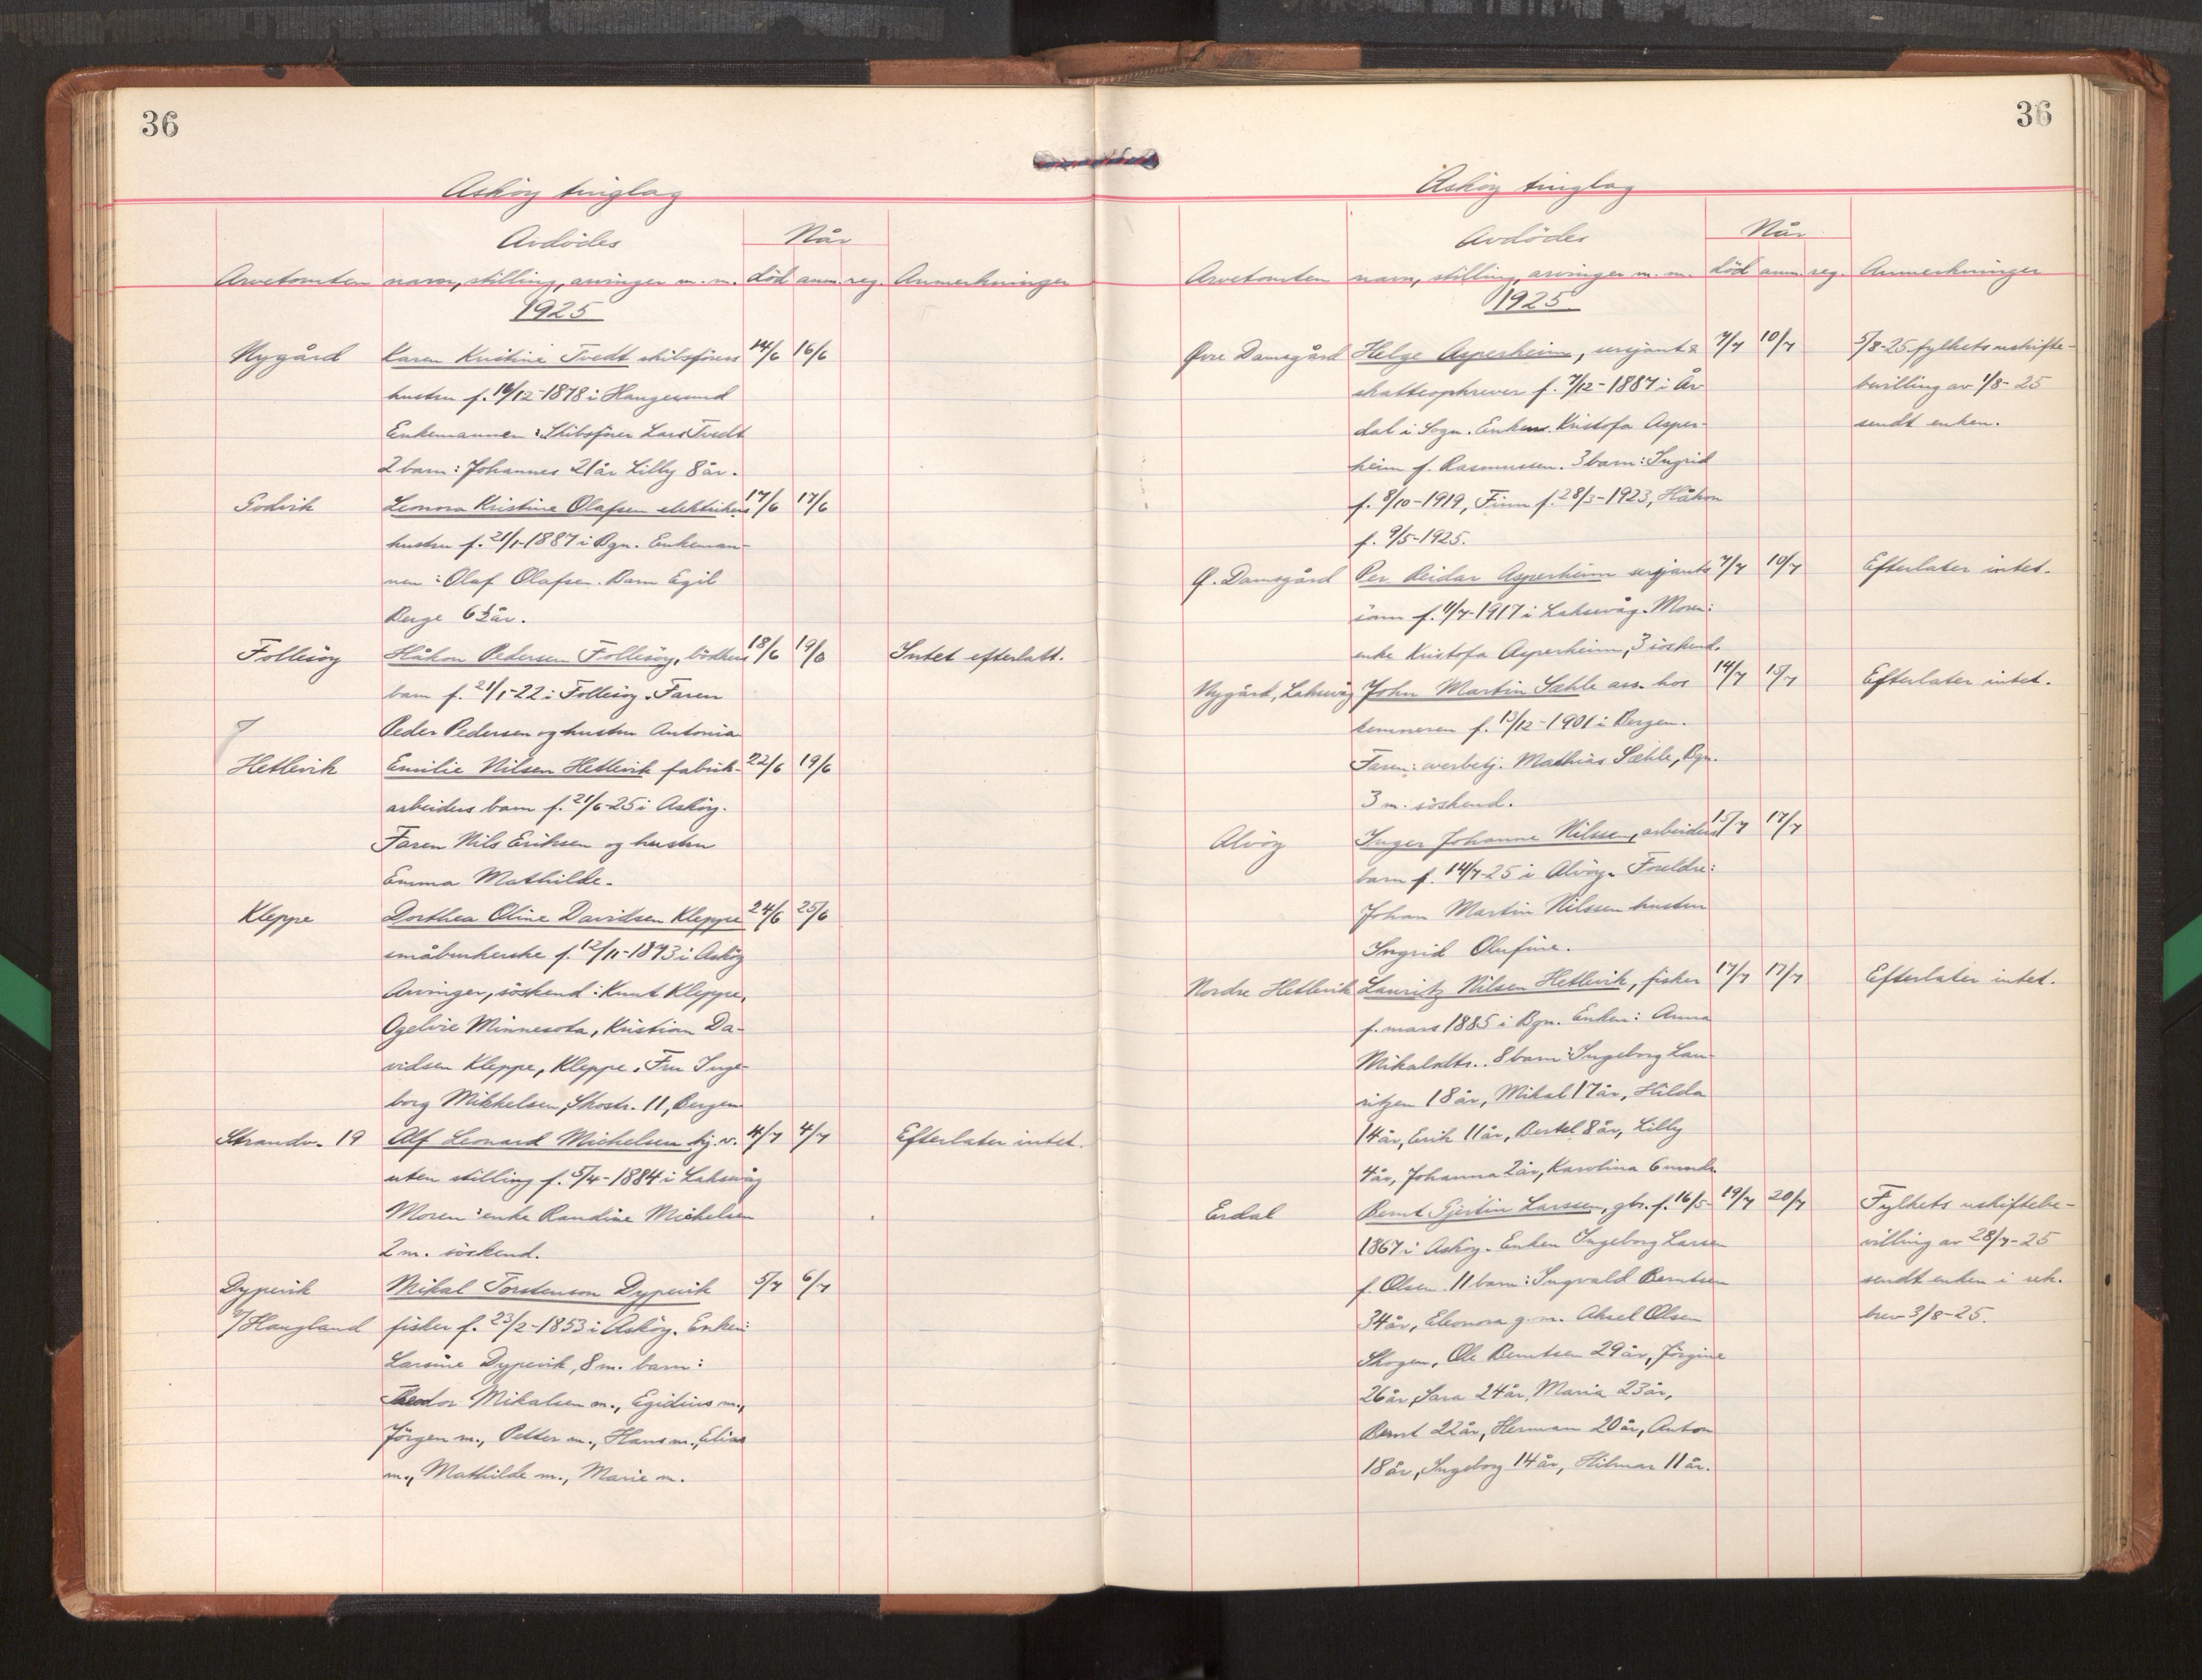 36
Asköy tinglag
Avdödes
Når
Arvetomten navn, stilling, arvinger m. m. död anm. reg. Anmerkninger
1925
Nygård Karen Kristine Tvedt skibsförers 14/6 16/6
hustru f. 16/12-1878 i Haugesund
Enkemannen: Skibsförer Lars Tvedt
2 barn: Johannes 21 år Lilly 8 år.
Godvik Leonora Kristine Olafsen elektrikers 17/6 17/6
hustru f. 21/1-1887 i Bgn. Enkeman-
nen: Olaf Olafsen. Barn Egil
Berge 6½ år.
Follesöy Håkon Pedersen Follesöy, bödkers 18/6 19/6 Intet efterlatt.
barn f. 21/1-22 i Follesöy. Faren
Peder Pedersen og hustru Antonia
Hetlevik Emilie Nilsen Hetlevik fabrik- 22/6 19/6
arbeiders barn f. 21/6-25 i Asköy.
Faren Nils Eriksen og hustru
Emma Mathilde.
Kleppe Dorthea Oline Davidsen Kleppe 24/6 25/6
småbrukerske f. 12/11-1873 i Asköy
Arvinger, söskend: Knut Kleppe,
Ogelvie Minnesota, Kristian Da-
vidsen Kleppe, Kleppe. Fru Inge-
borg Mikkelsen, Skostr. 11, Bergen
Strandv. 19 Alf Leonard Michelsen hj. v. 4/7 4/7 Efterlater intet.
uten stilling f. 5/4-1884 i Laksevåg
Moren: enke Randine Michelsen
2 m. söskend.
Dypevik Mikal Torstenson Dypevik 5/7 6/7
p/Haugland fisker f. 23/2-1853 i Asköy. Enken:
Larsine Dypevik, 8 m. barn:
Theodor Mikalsen m., Egidius m.,
Jörgen m., Petter m., Hans m., Elias
m., Mathilde m., Marie m.
36
Asköy tinglag
Avdödes
Når
Arvetomten navn, stilling, arvinger m. m. död anm. reg. Anmerkninger
1925
Övre Damsgård Helge Asperheim, sersjant & 7/7 10/7 5/8-25 fylkets uskifte-
skatteopkrever f. 7/12-1887 i År- bevilling av 1/8-25
dal i Sogn. Enken Kristofa Asper- sendt enken.
heim f. Rasmussen. 3 barn: Ingrid
f. 8/10-1919, Finn f. 28/3-1923, Håkon
f. 9/5-1925.
Ö. Damsgård Per Reidar Asperheim sersjants 7/7 10/7 Efterlater intet.
sönn f. 11/7-1917 i Laksevåg. Moren:
enke Kristofa Asperheim, 3 söskend.
Nygård, Laksevåg John Martin Sæhle ass. hos 14/7 15/7 Efterlater intet.
kemneren f. 13/12-1901 i Bergen.
Faren: overbetj. Mathias Sæhle, Bgn.
3 m. söskend.
Alvöy Inger Johanne Nilssen, arbeiders 15/7 17/7
barn f. 14/7-25 i Alvöy. Foreldre:
Johan Martin Nilssen hustru
Ingrid Olufine.
Nordre Hetlevik Lauritz Nilsen Hetlevik, fisker 17/7 17/7 Efterlater intet.
f. mars 1885 i Bgn. Enken: Anna
Mikalsdtr.. 8 barn: Ingeborg Lau-
ritzen 18 år, Mikal 17 år, Hilda
14 år, Erik 11 år, Bertel 8 år, Lilly
4 år, Johanna 2 år, Karolina 6 mndr.
Erdal Bernt Gjertin Larssen, gbr. f. 16/5- 19/7 20/7 Fylkets uskiftebe-
1867 i Asköy. Enken Ingeborg Larsen villing av 28/7-25
f. Olsen. 11 barn: Ingvald Berntsen sendt enken i rek.
34 år, Eleonora g. m. Aksel Olsen brev 3/8-25.
Skogen, Ole Berntsen 29 år, Jörgine
26 år, Sara 24 år, Maria 23 år,
Bernt 22 år, Herman 20 år, Anton
18 år, Ingeborg 14 år, Hilmar 11 år.